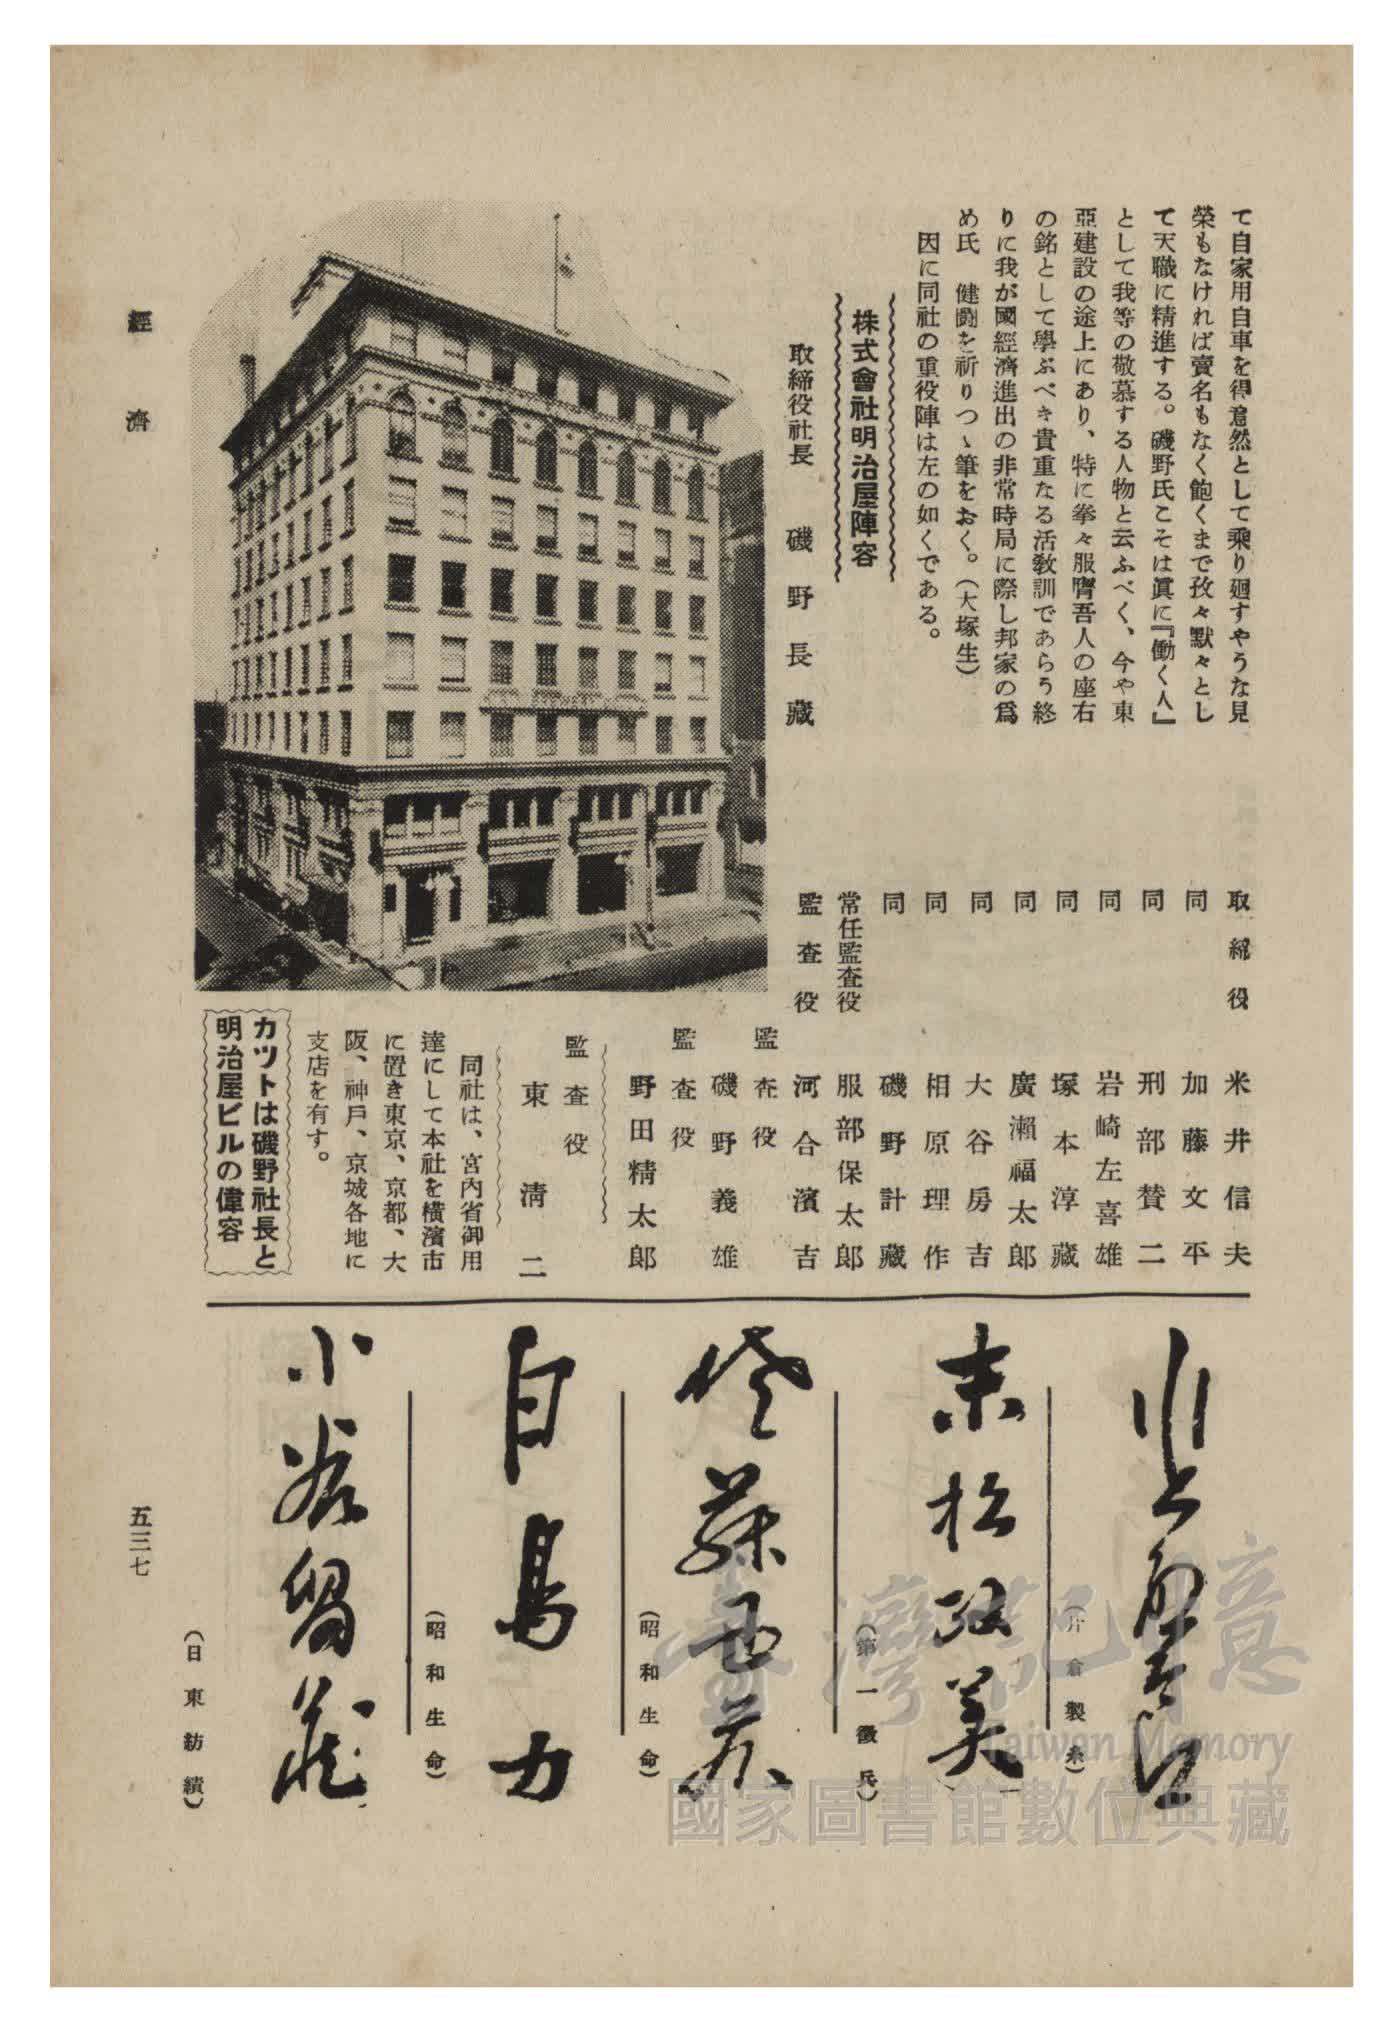 て自家用自車を得意然として乘り廻すやうな見
榮もなければ賣名もなく飽くまで孜々默々とし
て天職に精進する。磯野氏こそは眞に『働く人』
として我等の敬慕する人物と云ふべく、今や東
亞建設の途上にあり、特に拳々服膺吾人の座右
の銘として學ぶべき貴重なる活敎訓であらう終
りに我が國經濟進出の非常時局に際し邦家の爲
め氏 健鬪を祈りつゝ筆をおく。(大塚生)
因に同社の重役陣は左の如くである。
株式會社明治屋陣容
取締役社長 磯野長藏
取締役 米井信夫
同 加藤文平
同 刑部賛二
同 岩崎左喜雄
同 塚本淳藏
同 廣瀨福太郎
同 大谷房吉
同 相原理作
同 磯野計藏
常任監査役 服部保太郎
監査役 河合濱吉
監査役
磯野義雄
監査役
野田精太郎
監査役
東淸二
同社は、宮內省御用
達にして本社を横濱市
に置き東京、京都、大
阪、神戶、京城各地に
支店を有す。
カツトは磯野社長と
明治屋ビルの偉容
(片倉製糸)
末松玖美
(第一徵兵)
佐藤
(昭和生命)
白鳥力
(昭和生命)
小谷留藏
(日東紡績)
經濟
五三七
臺灣記憶
Taiwan Memory
國家圖書館數位典藏